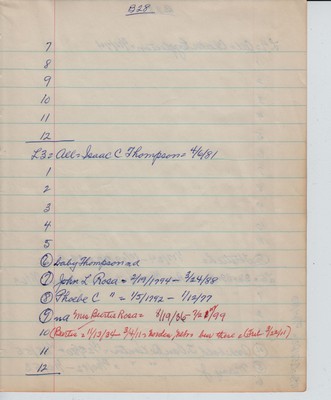 B28
7
8
9
10
11
12
L3= All= Isaac C Thompson= 4/6/81
1
2
3
4
5
6 baby Thompson nd
7 John L Rosa = 2/19/1774 - 3/24/88
8 Phoebe C " = 1/5/1792 - 1/12/77
9 nd Mrs Burtis Rosa= 8/19/36
10 (Burtis = 11/13/34 -
11
12